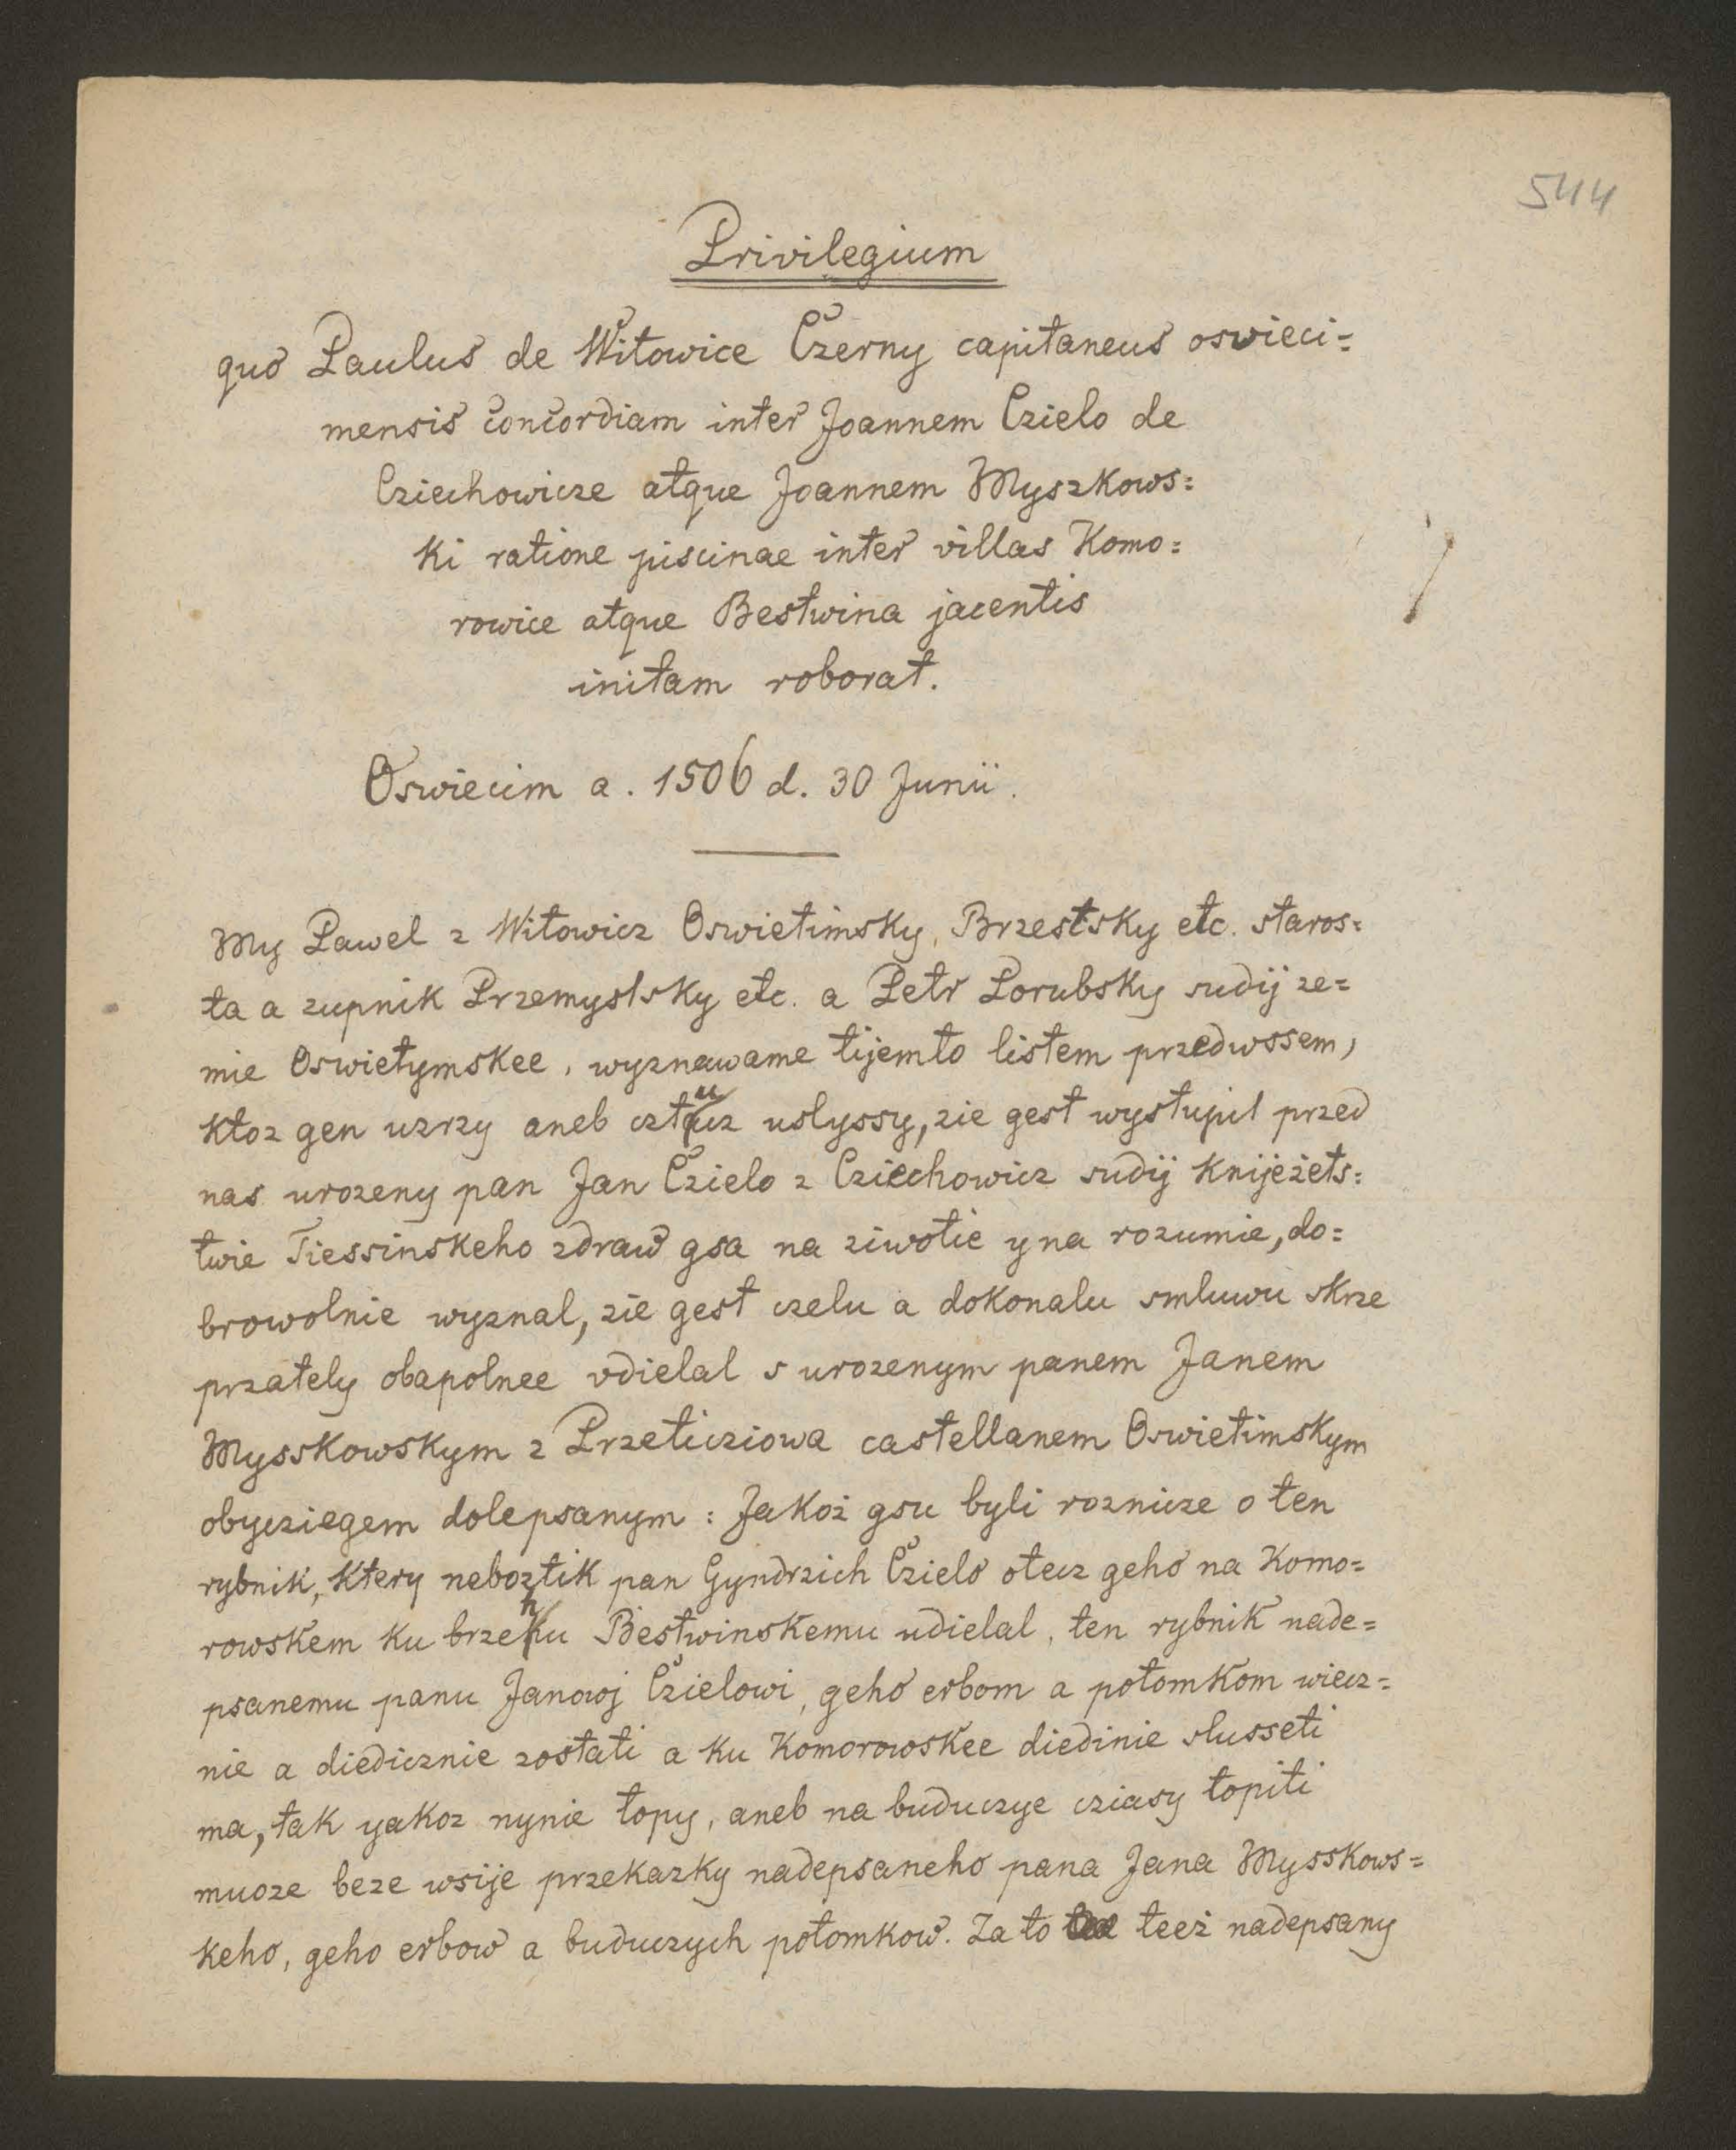 544
Privilegium
quo Paulus de Witowice Czerny capitaneus oswieci=
mensis concordiam inter Joannem Czielo de
Cziechowicze atque Joannem Myszkows=
ki ratione piscinae inter villas Komo=
rowice atque Bestwina jacentis
initam roborat.
Oswiecim a. 1506 d. 30 Junii.
My Pawel z Witowicz Oswietimsky, Brzestsky etc. staros=
ta a zupnik Przemyslsky etc. a Petr Porubsky sudij ze=
mie Oswietymskee, wyznawame tijemto listem przedwssem,
ktoz gen uzrzy aneb cztucz uslyssy, zie gest wystupil przed
nas urozeny pan Jan Czielo z Cziechowicz sudij knijeżets=
twie Tiessinskeho zdraw gsa na ziwotie y na rozumie, do=
browolnie wyznal, zie gest czelu a dokonalu smluwu skrze
przately obapolnee vdielal s urozenym panem Janem
Mysskowskym z Przeticziowa castellanem Oswietimskym
obycziegem dolepsanym: Jakoż gsu byli roznicze o ten
rybnik, ktery neboztik pan Gyndrzich Czielo otecz geho na Komo=
rowskem ku brzehu Bestwinskemu udielal, ten rybnik nade=
psanemu panu Janowj Czielowi, geho erbom a potomkom wiecz=
nie a diedicznie zostati a ku Komorowskee diedinie slusseti
ma, tak yakoz nynie topy, aneb na buduczye cziasy topiti
muoze beze wsije przekazky nadepsaneho pana Jana Mysskows=
keho, geho erbow a buduczych potomkow. Za to teeż nadepsany